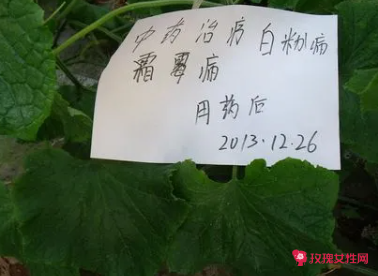 中药治疗白粉病
霜霉病
用药后
2013.12.26
玫瑰女性网